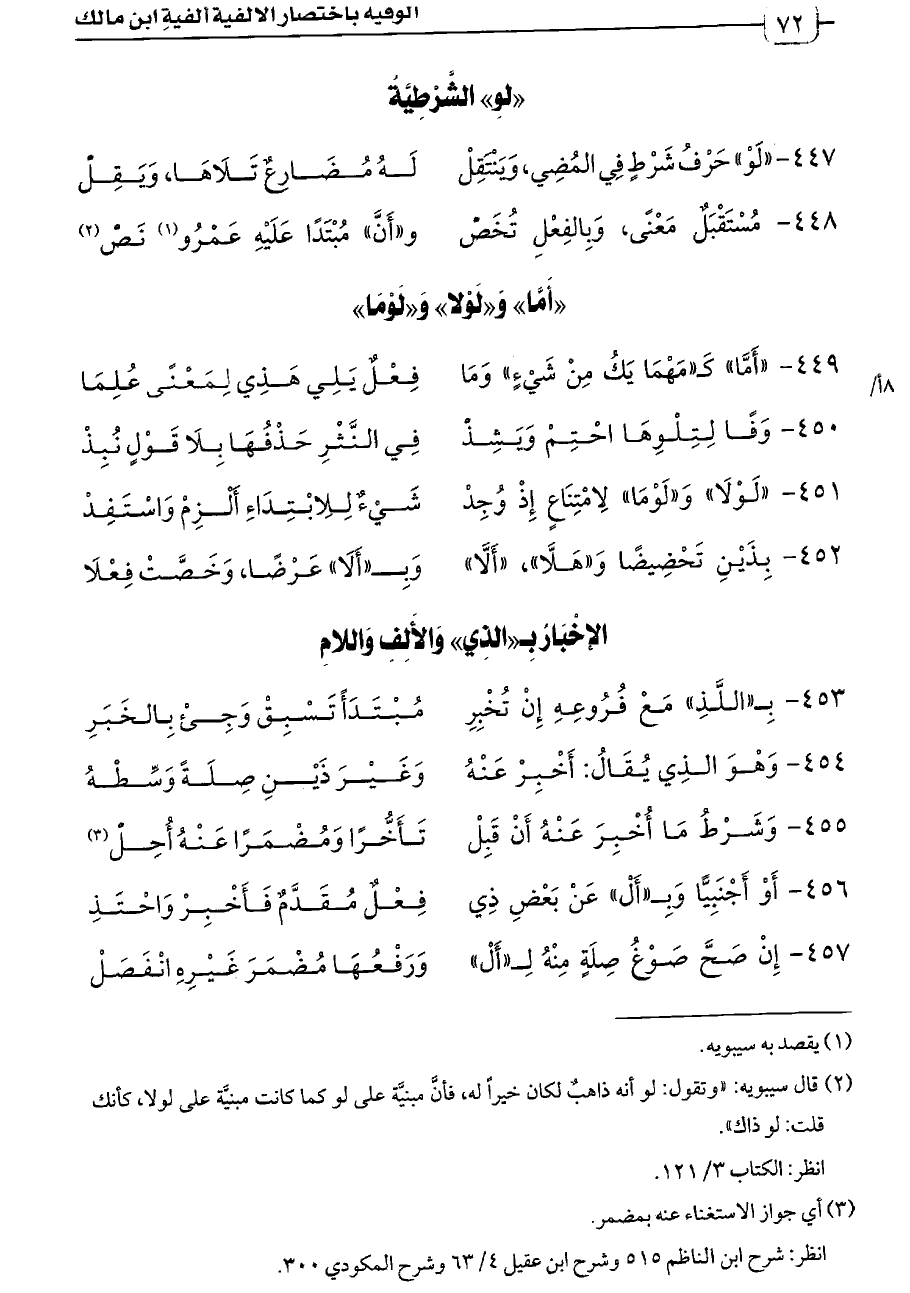 ٧٢
الوفيه باختصار الالفية ألفيةِ ابن مالك
«لو» الشَّرْطِيَّةُ
٤٤٧- «لَوْ» حَرْفُ شَرْطٍ فِي المُضِي، وَيَنْتَقِلْ لَـهُ مُـضَـارِعٌ تَـلَاهَـا، وَيَـقِـلْ
٤٤٨- مُسْتَقْبَلٌ مَعْنًى، وَبِالفِعْلِ تُخَصْ و«أَنَّ» مُبْتَدًا عَلَيْهِ عَمْرُو(١) نَصْ(٢)
«أَمَّا» وَ«لَوْلا» وَ«لَوْمَا»
٤٤٩- «أَمَّا» كَـ«مَهْمَا يَكُ مِنْ شَيْءٍ» وَمَا فِعْلٌ يَلِي هَذِي لِمَعْنًى عُلِمَا
٨أ/
٤٥٠- وَفَـا لِـتِـلْـوِهَـا احْـتِـمْ وَيَـشِـذْ فِي النَّثْرِ حَذْفُهَا بِلَا قَوْلٍ نُبِذْ
٤٥١- «لَوْلَا» وَ«لَوْمَا» لِامْتِنَاعٍ إِذْ وُجِدْ شَيْءٌ لِلِابْتِدَاءِ أَلْزِمْ وَاسْتَفِدْ
٤٥٢- بِذَيْنِ تَحْضِيضًا وَ«هَلَّا»، «أَلَّا» وَبِـ«أَلَا» عَرْضًا، وَخَصَّتْ فِعْلَا
الإخْبَارُ بِـ«الذي» وَالأَلِفِ وَاللامِ
٤٥٣- بِـ«الـلَّـذِ» مَـعْ فُـرُوعِـهِ إِنْ تُخْبِرِ مُبْتَدَأً تَسْبِقْ وَجِئْ بِالخَبَرِ
٤٥٤- وَهْوَ الَّذِي يُقَالُ: أَخْبِرْ عَنْهُ وَغَيْرَ ذَيْنِ صِلَةً وَسِّطْهُ
٤٥٥- وَشَرْطُ مَا أُخْبِرَ عَنْهُ أَنْ قَبِلْ تَأَخُّرًا وَمُضْمَرًا عَنْهُ أُحِلْ(٣)
٤٥٦- أَوْ أَجْنَبِيًّا وَبِـ«أَلْ» عَنْ بَعْضِ ذِي فِعْلٌ مُقَدَّمٌ فَأَخْبِرْ وَاحْتَذِ
٤٥٧- إِنْ صَحَّ صَوْغُ صِلَةٍ مِنْهُ لِـ«أَلْ» وَرَفْعُهَا مُضْمَرَ غَيْرِهِ انْفَصَلْ
(١) يقصد به سيبويه.
(٢) قال سيبويه: «وتقول: لو أنه ذاهبٌ لكان خيراً له، فأنَّ مبنيَّة على لو كما كانت مبنيَّة على لولا، كأنك
قلت: لو ذاك».
انظر: الكتاب ٣/ ١٢١.
(٣) أي جواز الاستغناء عنه بمضمر.
انظر: شرح ابن الناظم ٥١٥ وشرح ابن عقيل ٤/ ٦٣ وشرح المكودي ٣٠٠.